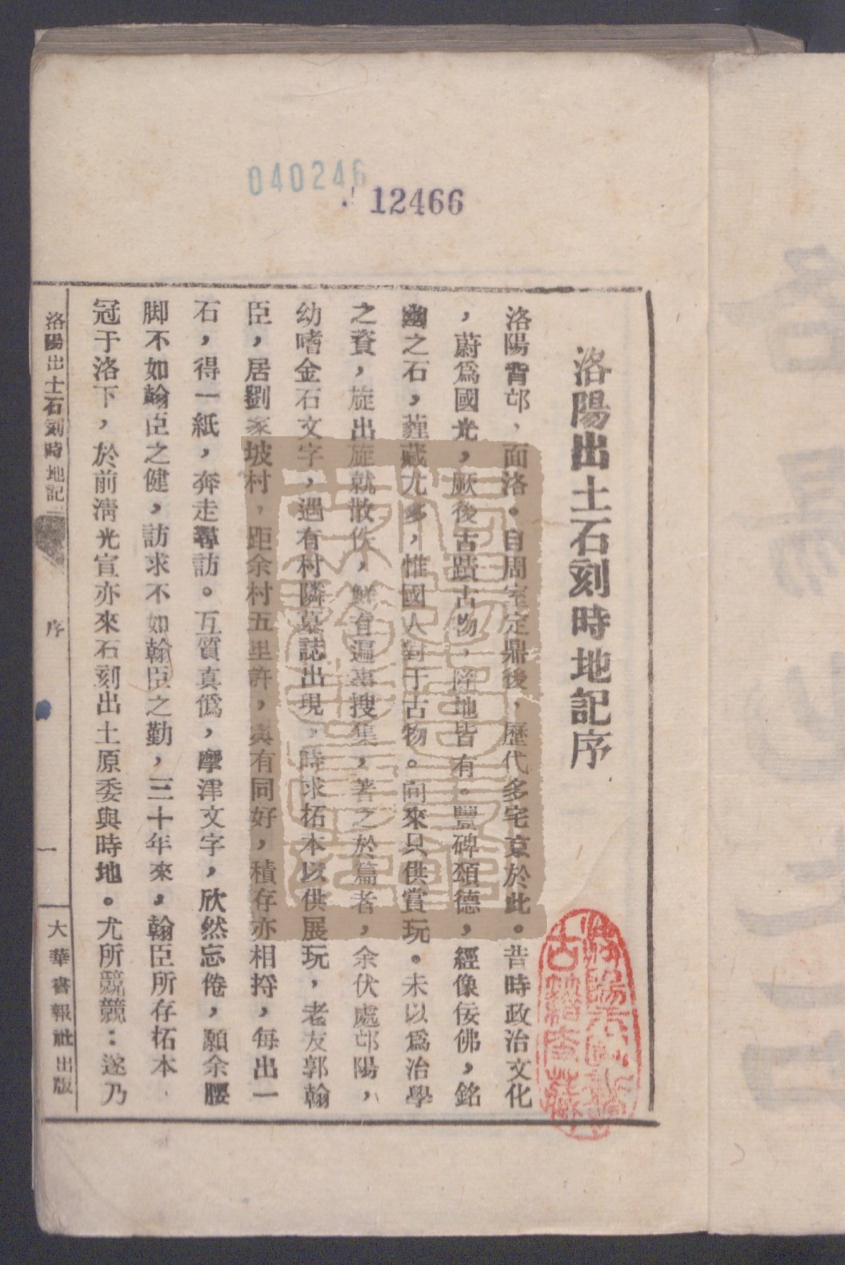 040246
12466
洛陽出土石刻時地記序
洛陽背邙，面洛。自周室定鼎後，歷代多宅京於此。昔時政治文化
，蔚爲國光，厥後古蹟古物，降地皆有。豐碑頌德，經像佞佛，銘
幽之石，薶藏尤多，惟國人對于古物。向來只供賞玩。未以爲治學
之資，旋出旋就散佚，鮮有遍事搜集，著之於篇者，余伏處邙陽，
幼嗜金石文字，遇有村隣墓誌出現，時求拓本以供展玩，老友郭翰
臣，居劉家坡村，距余村五里許，與有同好，積存亦相捋，每出一
石，得一紙，奔走尋訪。互質真僞，摩津文字，欣然忘倦，願余腰
脚不如翰臣之健，訪求不如翰臣之勤，三十年來，翰臣所存柘本
冠于洛下，於前淸光宣亦來石刻出土原委與時地。尤所兢兢：遂乃
洛陽出土石刻時地記
序
一
大華書報社出版